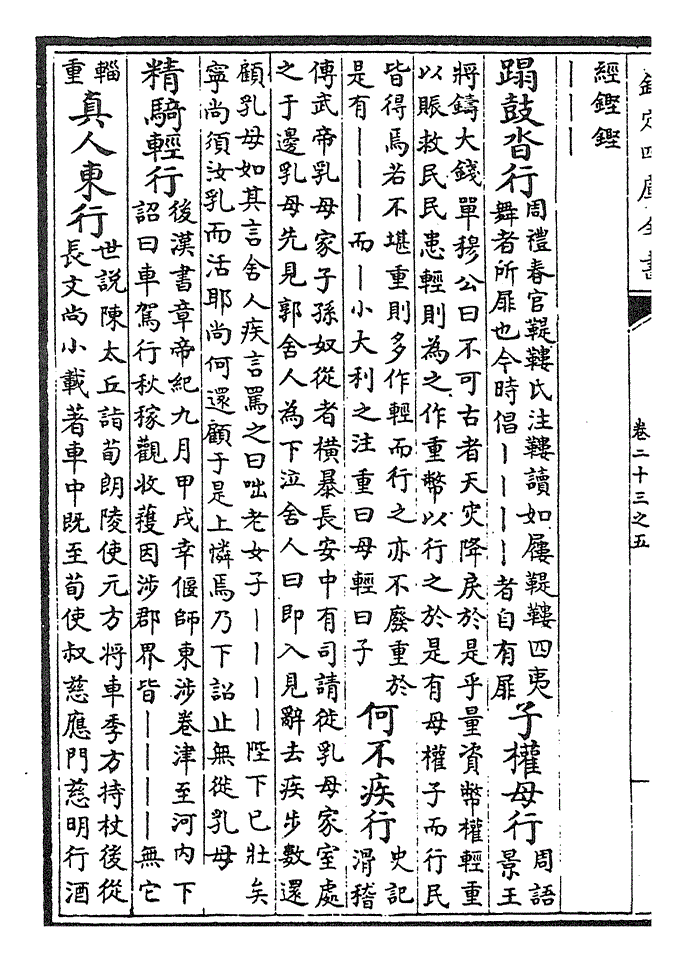 欽定四庫全書
卷二十三之五
經鏗鏗
————
蹋鼓沓行
周禮春官鞮鞻氏注鞻讀如屨鞮鞻四夷
舞者所扉也今時倡————者自有扉
子權母行
周語
景王
將鑄大錢單穆公曰不可古者天灾降戾於是乎量資幣權輕重
以賑救民民患輕則為之作重幣以行之於是有母權子而行民
皆得焉若不堪重則多作輕而行之亦不廢重於
是有———而—小大利之注重曰母輕曰子
何不疾行
史記
滑稽
傳武帝乳母家子孫奴從者橫暴長安中有司請徙乳母家室處
之于邊乳母先見郭舍人為下泣舍人曰即入見辭去疾步數還
顧乳母如其言舍人疾言罵之曰咄老女子————陛下已壯矣
寧尚須汝乳而活耶尚何還顧于是上憐焉乃下詔止無徙乳母
精騎輕行
後漢書章帝紀九月甲戌幸偃師東涉卷津至河内下
詔曰車駕行秋稼觀收穫因涉郡界皆————無它
輜
重
真人東行
世說陳太丘詣荀朗陵使元方將車季方持杖後從
長文尚小載著車中既至荀使叔慈應門慈明行酒